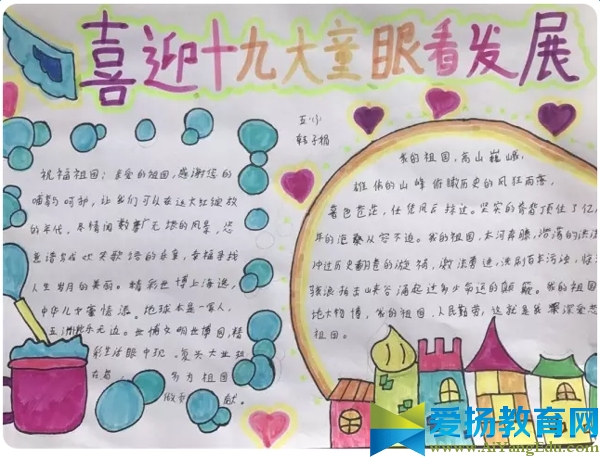 喜迎十九大童眼看发展
五小
韩子杨
祝福祖国:亲爱的祖国,感谢您的
哺育呵护,让我们可以在这大红绽放
的年代,尽情阅数着广无垠的风景,恣
意谱写成世英歌悟的乐章,幸福寻找
人生岁月的美丽。精彩世博上海滩,
中华儿女蜜情添。地球本是一家人,
五洲同乐无边。世博文明世博园,精
彩生活眼中现。复兴大业担
在肩,为祖国
做贡献。
我的祖国,高山巍峨:
雄伟的山峰俯瞰历史的风狂雨落,
暮色苍茫,任凭风云掠过。坚实的脊背顶住了亿
年的沧桑从容不迫。我的祖国,大河奔腾,浩荡的洪流
冲过历史翻卷的漩涡,激流勇进,洗刷百年污浊,惊
骇浪拍击峡谷涌起过多少命运的颠簸。我的祖国
地大物博,我的祖国,人民勤劳,这就是我深爱
祖国。
爱扬教育网
www.AiYangEdu.com